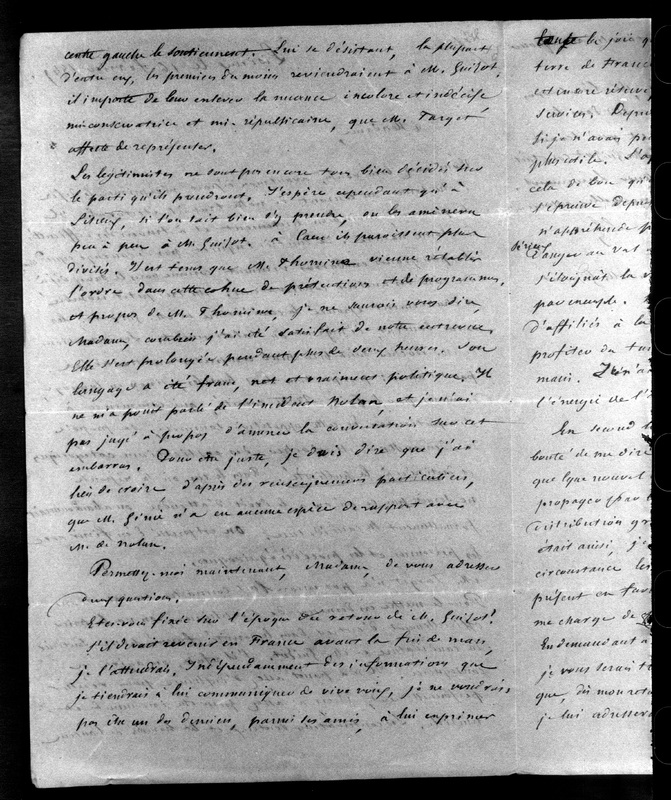 centre gauche le soutiennent. Lui se désistant, la plupart
d'entre eux, les premiers du moins reviendraient à M. Guizot.
il importe de leur enlever la nuance incolore et indécise,
mi-conservatrice et mi-républicaine, que M. Target
affecte de représenter.
Les légitimistes ne sont pas encore tous bien décidés sur
le parti qu'ils prendront. J'espère cependant qu'à
Lisieux, si l'on sait bien s'y prendre, on les amènera
peu à peu à M. Guizot. à Caen ils paraissent plus
divisés. Il est temps que M. Thomine vienne rétablir
l'ordre dans cette cohue de prétentions et de programmes.
et propos de M. Thomine, je ne saurais vous dire,
Madame, combien j'ai été satisfait de notre entrevue.
Elle s'est prolongée pendant plus de deux heures. Son
langage a été franc, net et vraiment politique. Il
ne m'a point parlé de l'incident Nolan, et je n'ai
pas jugé à propos d'amener la conversation sur cet
embarras. Pour être juste, je dois dire que j'ai
lieu de croire, d'après des renseignements particuliers,
que M. Génie n'a eu aucune espèce de rapport avec
M. de Nolan.
Permettez-moi maintenant, Madame, de vous adresser
deux questions.
Etes-vous fixée sur l'époque du retour de M. Guizot?
S'il devait revenir en France avant la fin de mars,
je l'attendrais. Indépendamment des informations que
je tiendrais à lui communiquer de vive voix, je ne voudrais
pas être un des derniers, parmi ses amis, à lui exprimer
la joie
terre de France
est encore
services. Depuis
si je n'avais
plus utile.
cela de bon qu'
l'épreuve
n'appréhende
sérieux
danger au
s'éloignât la
par exemple.
d'affiliés à la
profiter du
mais.
l'énergie de l'
En second
bonté de me dire
quelque nouvel
propager
distribution
était ainsi je
circonstance les
présent en
me charge de
En demandant à
je vous serais
que, dès mon
je lui adresserai